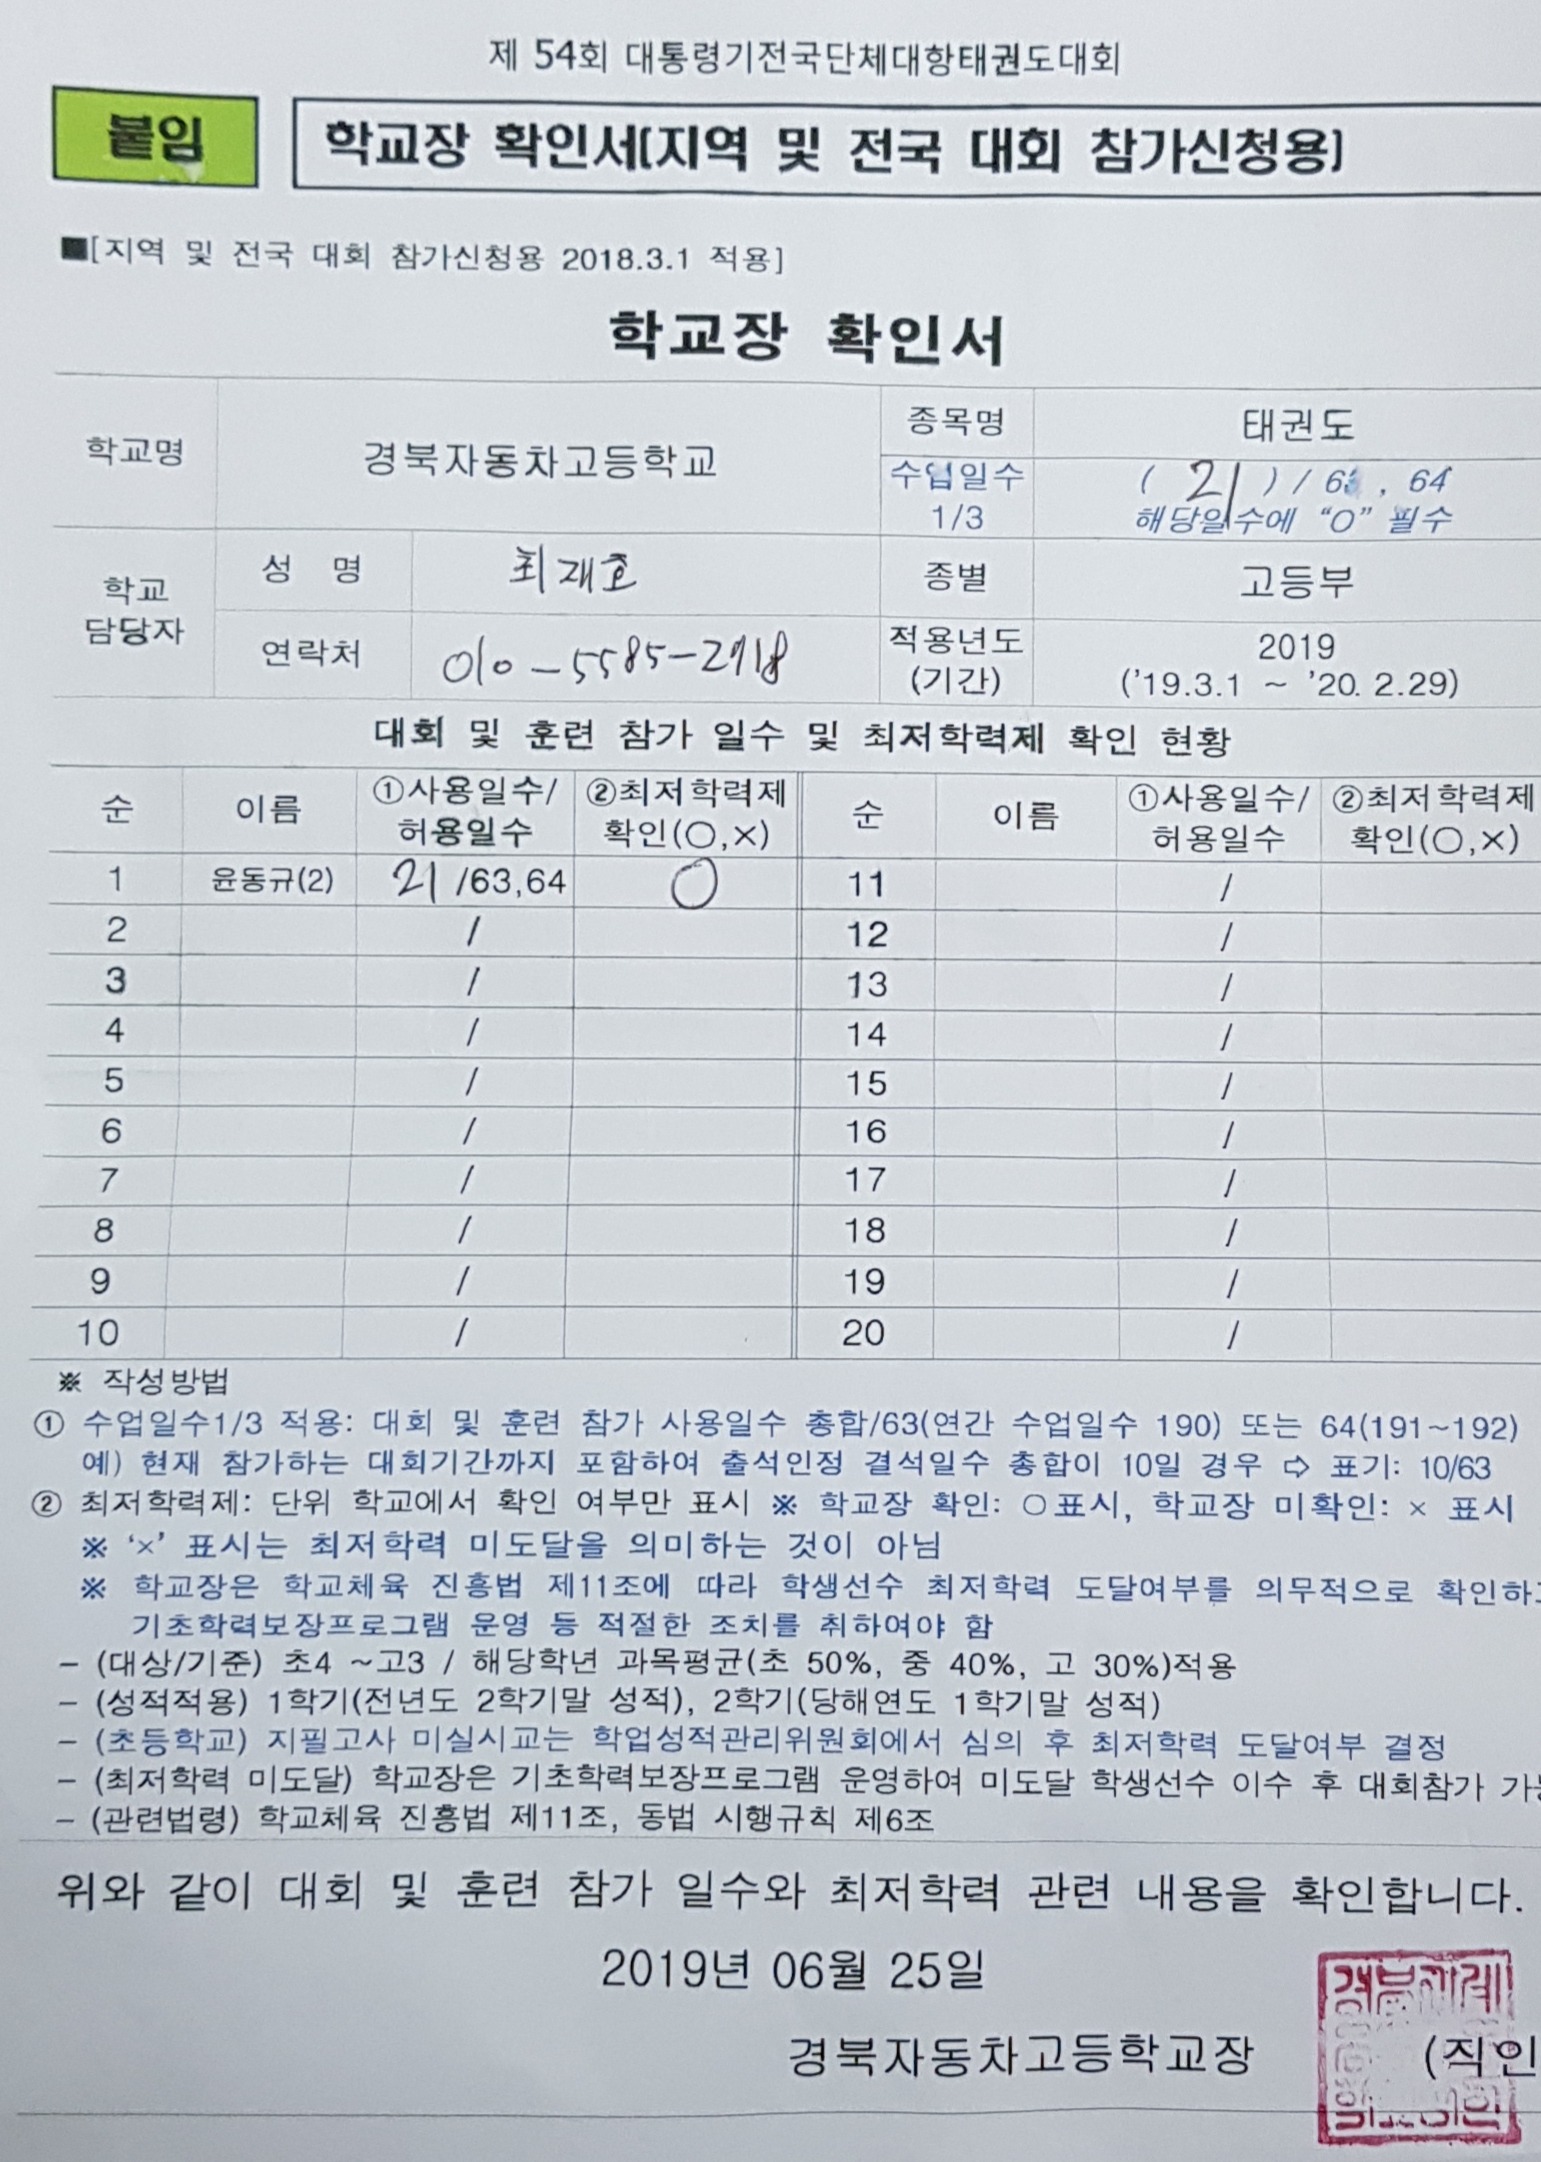 제 54회 대통령기전국단체대항태권도대회
붙임
학교장 확인서[지역 및 전국 대회 참가신청용]
■[지역 및 전국 대회 참가신청용 2018.3.1 적용]
학교장 확인서
학교명 경북자동차고등학교 종목명 태권도
수업일수 1/3 ( 21 ) / 6 , 64
해당일수에 “O” 필수
학교 담당자 성 명 최재호 종별 고등부
연락처 010-5585-2918 적용년도 (기간) 2019
('19.3.1 ~ '20. 2.29)
대회 및 훈련 참가 일수 및 최저학력제 확인 현황
순 이름 ①사용일수/ 허용일수 ②최저학력제 확인(○,×) 순 이름 ①사용일수/ 허용일수 ②최저학력제 확인(○,×)
1 윤동규(2) 21 /63,64 ○ 11 /
2 / 12 /
3 / 13 /
4 / 14 /
5 / 15 /
6 / 16 /
7 / 17 /
8 / 18 /
9 / 19 /
10 / 20 /
※ 작성방법
① 수업일수1/3 적용: 대회 및 훈련 참가 사용일수 총합/63(연간 수업일수 190) 또는 64(191~192)
예) 현재 참가하는 대회기간까지 포함하여 출석인정 결석일수 총합이 10일 경우 ⇨ 표기: 10/63
② 최저학력제: 단위 학교에서 확인 여부만 표시 ※ 학교장 확인: ○표시, 학교장 미확인: × 표시
※ ‘×’ 표시는 최저학력 미도달을 의미하는 것이 아님
※ 학교장은 학교체육 진흥법 제11조에 따라 학생선수 최저학력 도달여부를 의무적으로 확인하고
기초학력보장프로그램 운영 등 적절한 조치를 취하여야 함
- (대상/기준) 초4 ~고3 / 해당학년 과목평균(초 50%, 중 40%, 고 30%)적용
- (성적적용) 1학기(전년도 2학기말 성적), 2학기(당해연도 1학기말 성적)
- (초등학교) 지필고사 미실시교는 학업성적관리위원회에서 심의 후 최저학력 도달여부 결정
- (최저학력 미도달) 학교장은 기초학력보장프로그램 운영하여 미도달 학생선수 이수 후 대회참가 가능
- (관련법령) 학교체육 진흥법 제11조, 동법 시행규칙 제6조
위와 같이 대회 및 훈련 참가 일수와 최저학력 관련 내용을 확인합니다.
2019년 06월 25일
경북자동차고등학교장 (직인